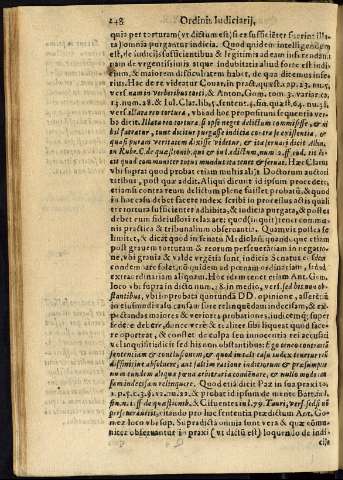 248 Ordinis Iudiciarij,
quia per torturam (vt dictum est) si ex sufficiẽter fuerint illa-
ta) omnia purgantur indicia. Quod quidem intelligendum
est, de iudicijs sufficientibus & legitimis ad eam inferendam:
nam de vrgentissimis atque indubitatis aliud forte est indi-
cium, & maiorem difficultatem habet, de qua dicemus infe-
rius. Hac de re videatur Couar. in pract. quæst. cap. 23. nu. 5.
vers. nam in verberibus tati, & Anton. Gom. tom. 3. variar. ca.
13. num. 28. & Iul. Clar. lib. 5. sentent. §. fin. quæst. 64. nu. 38.
vers. illata reo tortura, vbi ad hoc propositum sequentia ver-
ba dicit. Illata reo tortura, si ipse negat delictum commisisse, & ni
hil fateatur, tunc dicitur purgasse indicia contra se existentia, &
quasi puram veritatem dixisse videtur, & ita tenuit dicit Alba.
in Rub. C. de quæstionib. que per l. edictum, num 2. ff. eod. tit. di-
cit quod communiter totus mundus ita tenet & seruat. Hæc Clarus
vbi supra quod probat etiam multis alijs Doctorum auctori
tatibus, post quæ addit. Aliqui dicunt id ipsum procedere,
etiamsi contra reum delictum plene fuisset probatũ, & quod
in hoc casu debet facere index scribi in processu actis quali
ter tortura sufficienter adhibita, & indicia purgata, & postea
debet eum fideiussori relaxare: quod (inquit) tenet commu-
nis practica & tribunalium obseruantia. Quamuis postea se
limitet, & dicat quod in senatu Mediolani, quandoque etiam
post grauem torturam & reorum perseuerãtiam in negatio-
ne, vbi grauia & valde vrgẽtia sunt, indicia Senatus eosdem
condemnare solet, nõ quidem ad pœnam ordinariam, sed ad
extraordinariam aliquam. Idque idem tenet etiam Ant. Gom.
loco vbi supra in dicto num. 28. in medio, vers. sed bis non obs-
tantibus, vbi improbata quorundã DD. opinione, asserẽtiũ
hoc esse modi tali, causam fore relinquẽdam indecisam, & ex-
pectandas maiores & veriores probationes, iudicemq; super
sedere debere, donec verè & realiter sibi liqueat quod face-
re oporteat, & constet de culpa seu innocentia rei accusati
vel inquisiti dicit: sed his non obstantibus: Ego teneo contrariã
sententiam & conclusionem, & quod in tali casu iudex tenetur reũ
diffinitiue absoluere, aut saltim ratione indiciorum & præsumptio
num eundem aliqua pœna arbitraria condemnare, & nullo modo cau
sam indecisam relinquere. Quod etiã dicit Paz in sua praxi to.
1. p. 5. c. 3. §. 12. nu. 22. & probat id ipsum de mente Bart. in l.
fin. n. 1. ff. de quæstionib. & Cifuentes in l. 79. Tauri, vers. sed si nõ
perseuerantis, citando pro hac sententia prædictum Ant. Go-
mez loco vbi sup. Supradicta omnia sunt vera & quæ cõmu-
niter obseruantur in praxi (vt dictũ est) loquendo de indi-
cijs